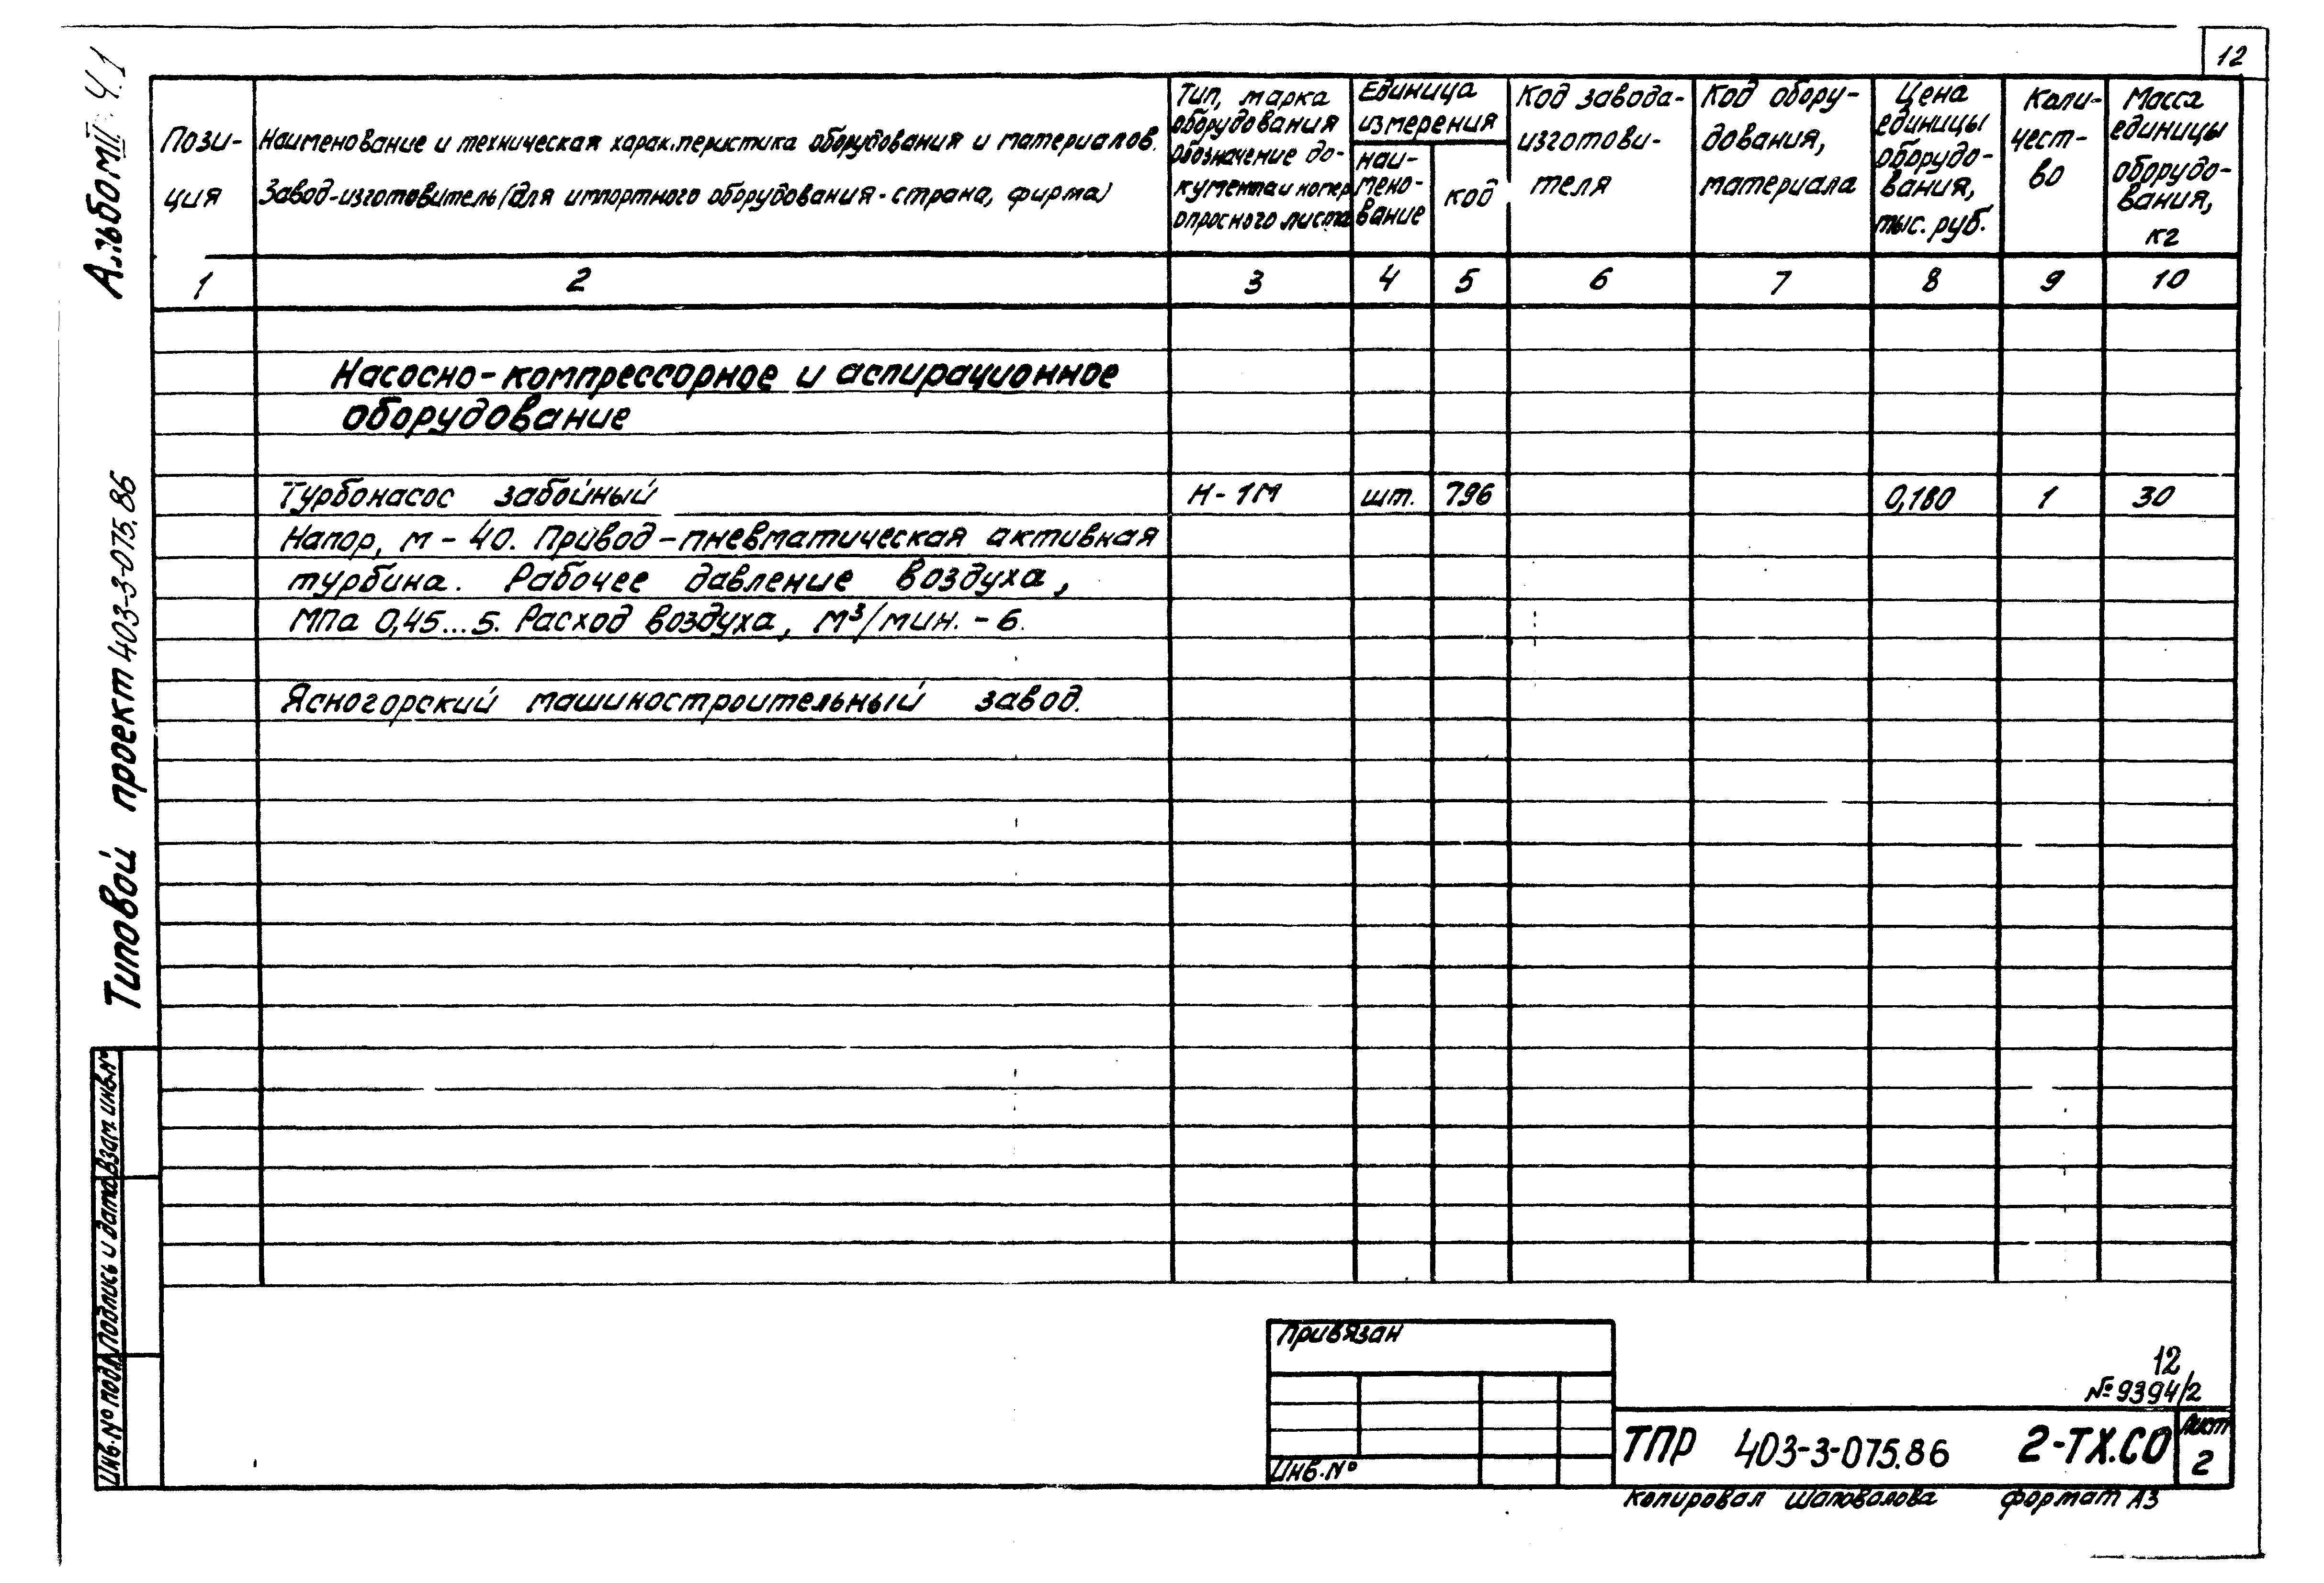 12
Альбом III Ч.1
Типовой проект 403-3-075.86
Пози-
ция
Наименование и техническая характеристика оборудования и материалов.
Завод-изготовитель (для импортного оборудования - страна, фирма)
Тип, марка
оборудования
Обозначение до-
кумента и номер
опросного листа
Единица
измерения
наи-
мено-
вание
код
Код завода-
изготови-
теля
Код обору-
дования,
материала
Цена
единицы
оборудо-
вания,
тыс. руб.
Коли-
чест-
во
Масса
единицы
оборудо-
вания,
кг
1 2 3 4 5 6 7 8 9 10
Насосно-компрессорное и аспирационное
оборудование
Турбонасос забойный Н-1М шт. 796 0,180 1 30
Напор, м - 40. Привод - пневматическая активная
турбина. Рабочее давление воздуха,
МПа 0,45...5. Расход воздуха, м³/мин. - 6.
Ясногорский машиностроительный завод.
Взам. инв.№
Подпись и дата
Инв.№ подл.
Привязан
Инв.№
12
№ 9394/2
ТПР 403-3-075.86 2-ТХ.СО
Лист
2
Копировал Шаповалова формат А3